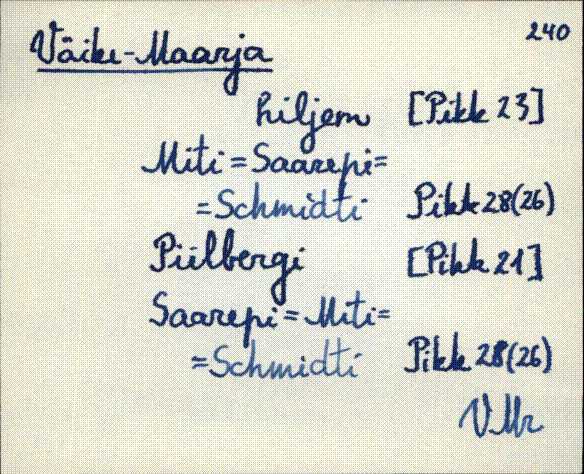 240
Väike-Maarja
hiljem [Pikk 23]
Miti = Saarepi =
= Schmidti Pikk 28 (26)
Piilbergi [Pikk 21]
Saarepi = Miti =
= Schmidti Pikk 28 (26)
VMr